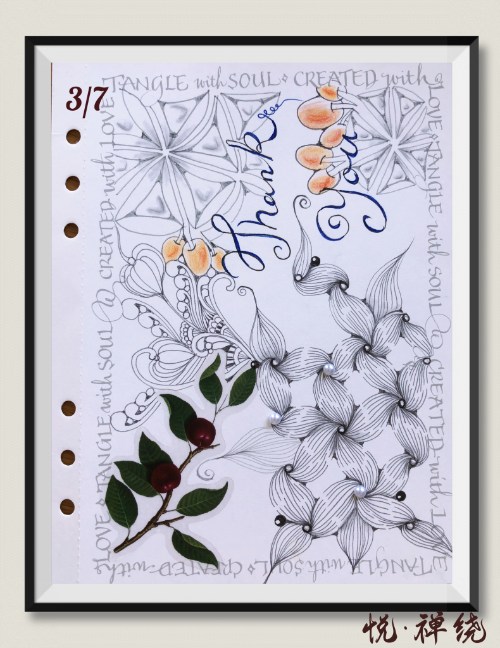 3/7
TANGLE with SOUL ⬥ CREATED with
LOVE ⬥ TANGLE with SOUL @ CREATED with LOVE
Thank
You
LOVE ⬥ TANGLE with SOUL @ CREATED with LOVE
TANGLE with SOUL ⬥ CREATED with
悦·禅绕